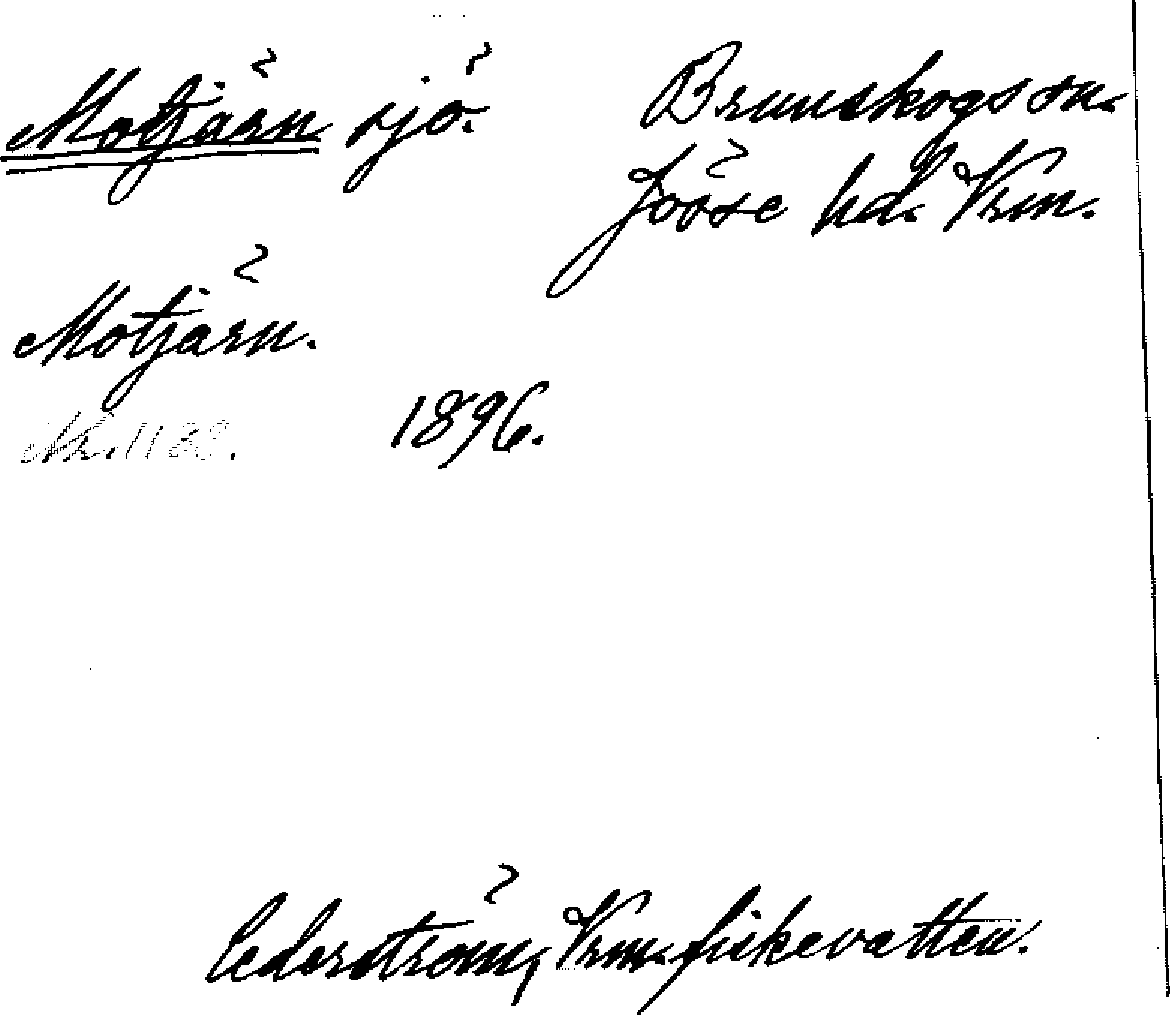 Motjärn sjö. Brunskogs sn.
Jösse hd. Vrm.
Motjärn.
1896.
Cederström, Vrm. fiskevatten.